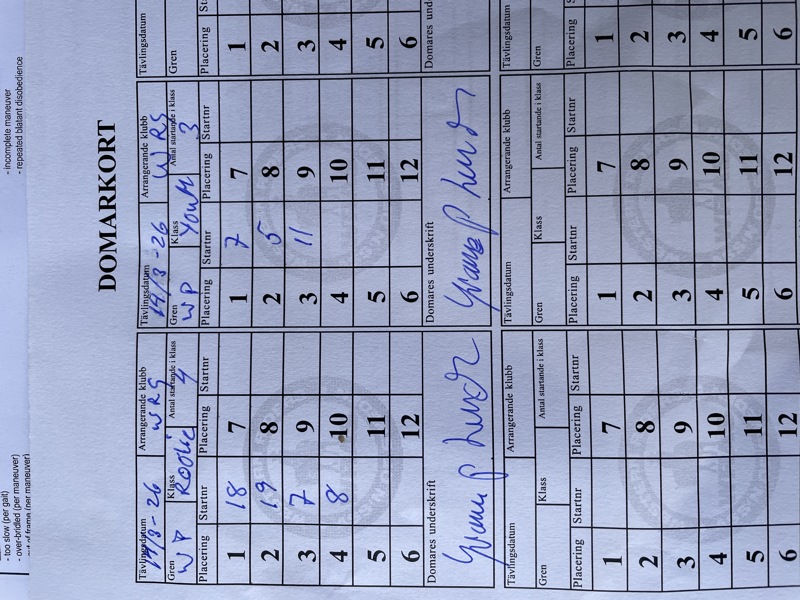 - too slow (per gait)
- over-bridled (per maneuver)
- out of frame (per maneuver)
- incomplete maneuver
- repeated blatant disobedience
DOMARKORT
Tävlingsdatum Arrangerande klubb
14/3-26 WRS
Gren Klass Antal startande i klass
WP Rookie 4
Placering Startnr Placering Startnr
1 18 7
2 19 8
3 7 9
4 8 10
5 11
6 12
Domares underskrift
Tävlingsdatum Arrangerande klubb
14/3-26 WRS
Gren Klass Antal startande i klass
WP Youth 3
Placering Startnr Placering Startnr
1 7 7
2 5 8
3 11 9
4 10
5 11
6 12
Domares underskrift
Tävlingsdatum
Gren
Placering
1
2
3
4
5
6
Domares underskrift
Tävlingsdatum Arrangerande klubb
Gren Klass Antal startande i klass
Placering Startnr Placering Startnr
1 7
2 8
3 9
4 10
5 11
6 12
Tävlingsdatum Arrangerande klubb
Gren Klass Antal startande i klass
Placering Startnr Placering Startnr
1 7
2 8
3 9
4 10
5 11
6 12
Tävlingsdatum
Gren
Placering
1
2
3
4
5
6